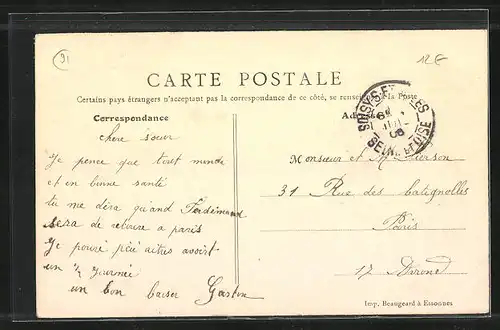 91
12 E
CARTE POSTALE
Certains pays étrangers n'acceptant pas la correspondance de ce côté, se renseigner à la Poste
Correspondance
Adresse
SEINE ET OISE
chere sœur
Je pence que tout monde
et en bonne santé
tu me dira quand Ferdinand
sera de retoure a paris
Je pouré avoir
un ½ journée
un bon baiser Gaston
Monsieur et M Pierson
31 Rue des batignolles
Paris
17 Arrond
Imp. Beaugeard à Essonnes